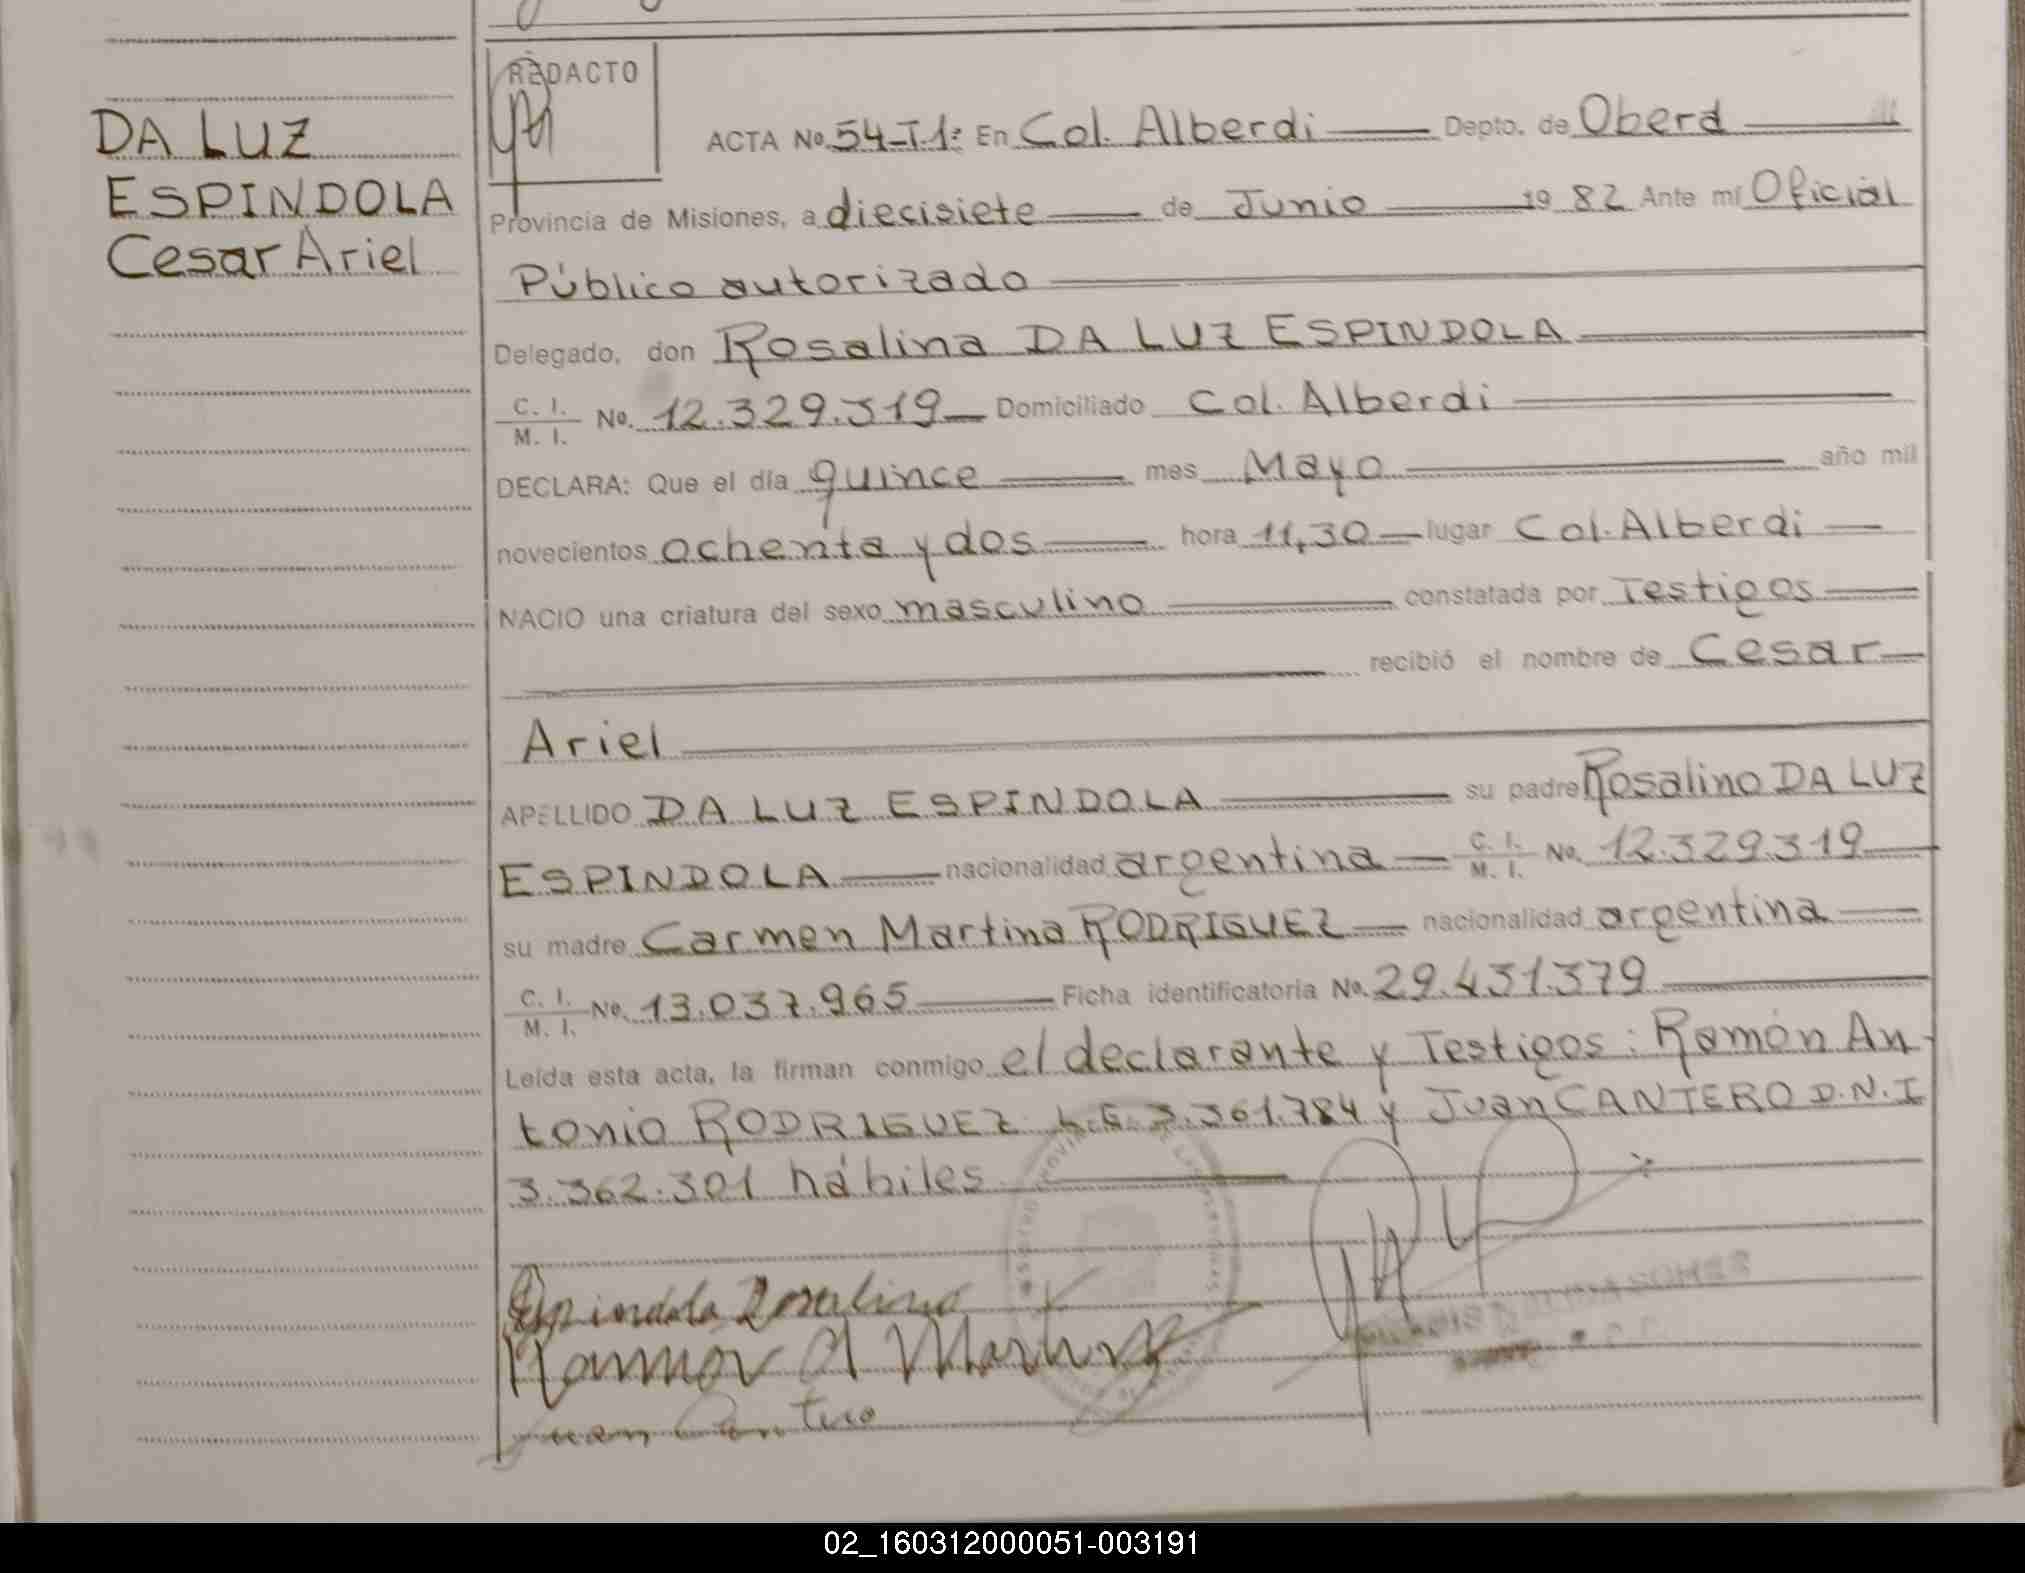 REDACTO
DA LUZ
ESPINDOLA
Cesar Ariel
ACTA No. 54-T.1: En Col. Alberdi Depto. de Oberá
Provincia de Misiones, a diecisiete de Junio 19 82 Ante mí Oficial
Público autorizado
Delegado, don Rosalina DA LUZ ESPINDOLA
C. I. / M. I. No. 12.329.319 Domiciliado Col. Alberdi
DECLARA: Que el día quince mes Mayo año mil
novecientos ochenta y dos hora 11,30 lugar Col. Alberdi
NACIO una criatura del sexo masculino constatada por Testigos
recibió el nombre de Cesar
Ariel
APELLIDO DA LUZ ESPINDOLA su padre Rosalino DA LUZ
ESPINDOLA nacionalidad argentina C. I. / M. I. No. 12.329.319
su madre Carmen Martina RODRIGUEZ nacionalidad argentina
C. I. / M. I. No. 13.037.965 Ficha identificatoria No. 29.431.379
Leída esta acta, la firman conmigo el declarante y Testigos: Ramón An-
tonio RODRIGUEZ L.E. 3.361.784 y Juan CANTERO D.N.I
3.362.301 hábiles
Espindola Rosalino
Juan Cantero
02_160312000051-003191